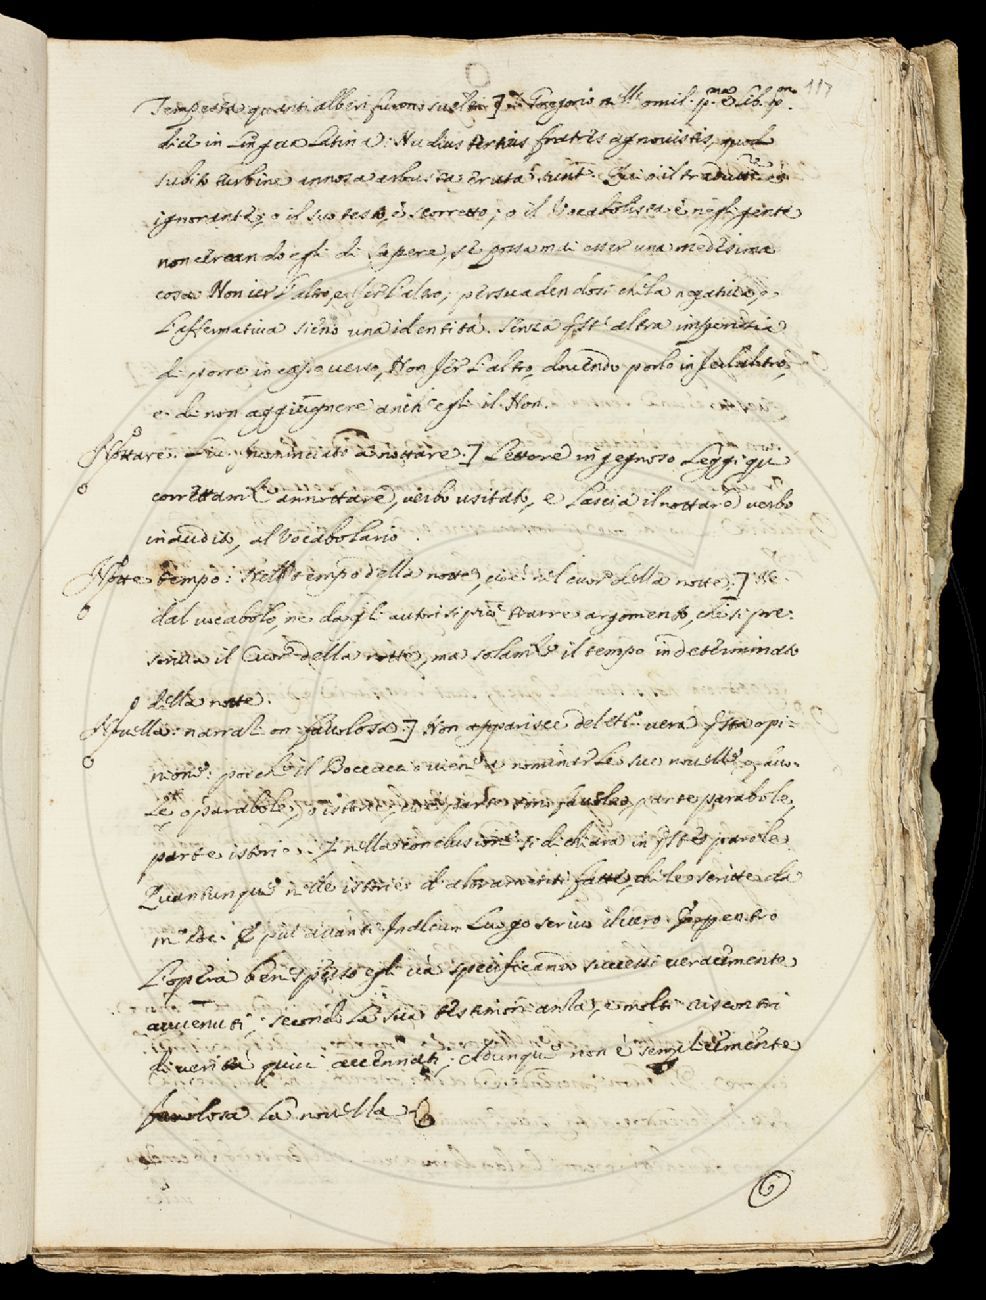 117
Tempesta quanti alberi furono suelti.] S. Gregorio n.lle omil. p.ma e lib. p.mo
dice in Lingua Latina: Nudius tertius fratres agnouistis, quod
subito turbine annosa arbusta eruta sunt. Qui o il tradutt.re è
ignorante; o il suo testo è scorretto; o il Vocabolista è negligente
non cercando egli di sapere, se possa mai esser una medesima
cosa Non ier l'altro, e Ier l'altro; persuadendosi che la negatiua, e
l'affermatiua sieno una identità. Senza q.sta altra imperizia
di porre in capo uerso, Non Ier l'altro, douendo porlo in Ier l'altro,
e di non aggiugnere anch'egli il Non.
Nottare. pronunciato a nottare.] Lettore ingegnoso Leggi qui
correttam.te annottare, uerbo usitato, e Lascia il nottare uerbo
inaudito, al Vocabolario.
Notte tempo: Nel tempo della notte, cioè nel cuor della notte.] Ne
dal uocabolo, ne dagli autori si può trarre argomento, che si pre:
scriua il Cuor della notte, ma solam.te il tempo indeterminato
della notte.
Nouella: narrat.on fauolosa.] Non apparisce del tt.o uera q.sta opi:
nione: poiche il Boccacci uien a nominar Le sue nouelle, o fauo:
Le, o parabole, o istorie, parte fauole, parte parabole,
parte istorie. E nella conclusione si dichiara in q.ste parole
Quantunque nelle istorie d'altramenti fatte, che le scritte da
me &c. E più auanti In alcun Luogo scriue il uero. per entro
L'opera bene spesso egli uà specificando successi ueramente
auuenuti, secondo La sua testimonianza, e molti riscontri
di uerità quiui accennati; Adunque non è semplicemente
fauolosa La nouella.
6